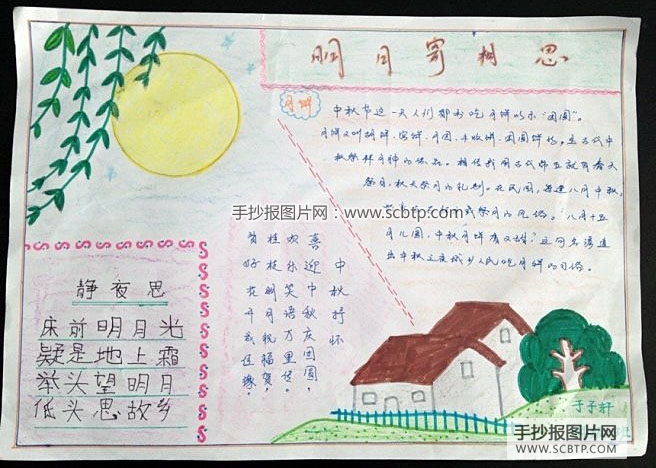 明月寄相思
月饼
中秋节这一天人们都要吃月饼以示“团圆”。
月饼又叫胡饼、宫饼、月团、丰收饼、团圆饼等，是古代中
秋祭拜月神的供品。相传我国古代帝王就有春天
祭日，秋天祭月的礼制。在民间，每逢八月中秋，
祭月的风俗。“八月十五
月儿圆，中秋月饼香又甜”这句名谚道
出中秋之夜城乡人民吃月饼的习俗。
手抄报图片网：www.scbtp.com
中秋抒怀
喜迎中秋庆团圆，
欢乐笑语万里传。
桂枝明月祝福贺，
好花开会佳缘。
静夜思
床前明月光
疑是地上霜
举头望明月
低头思故乡
于子轩
手抄报图片网
WWW.SCBTP.COM